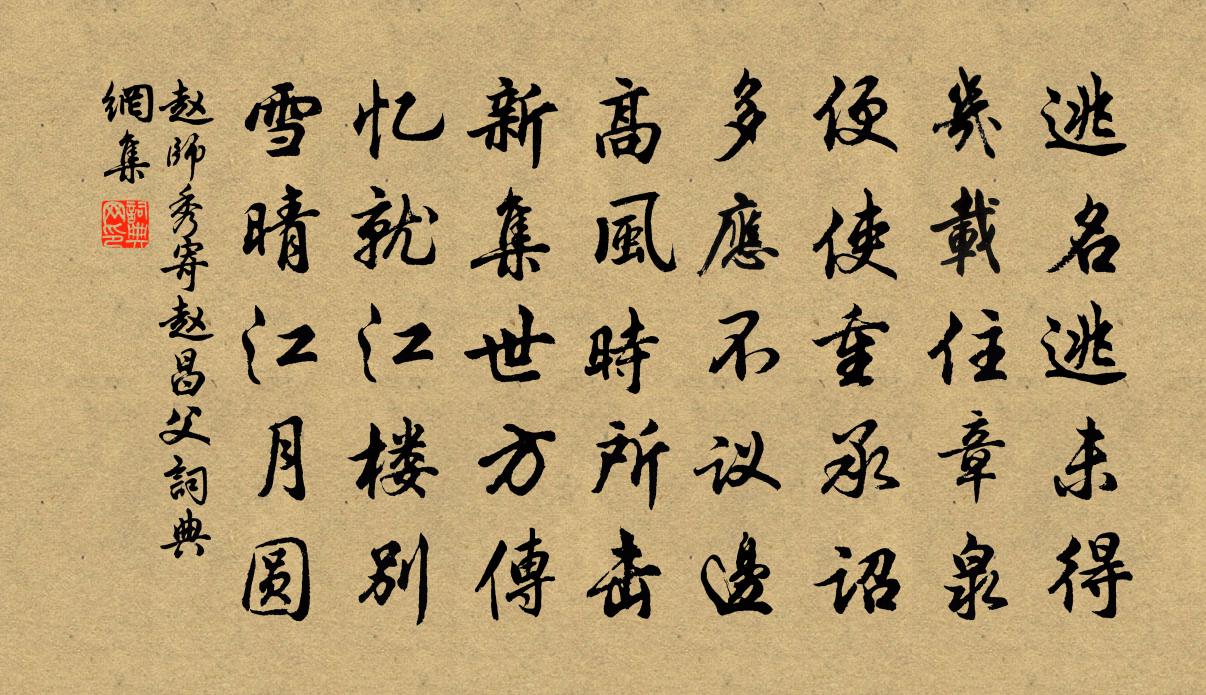 逃名逃未得
幾載住章泉
便使重承诏
多應不议邊
高風時所击
新集世方傳
忆就江楼别
雪晴江月圆
赵師秀寄赵昌父詞典
網集
詞典
网印